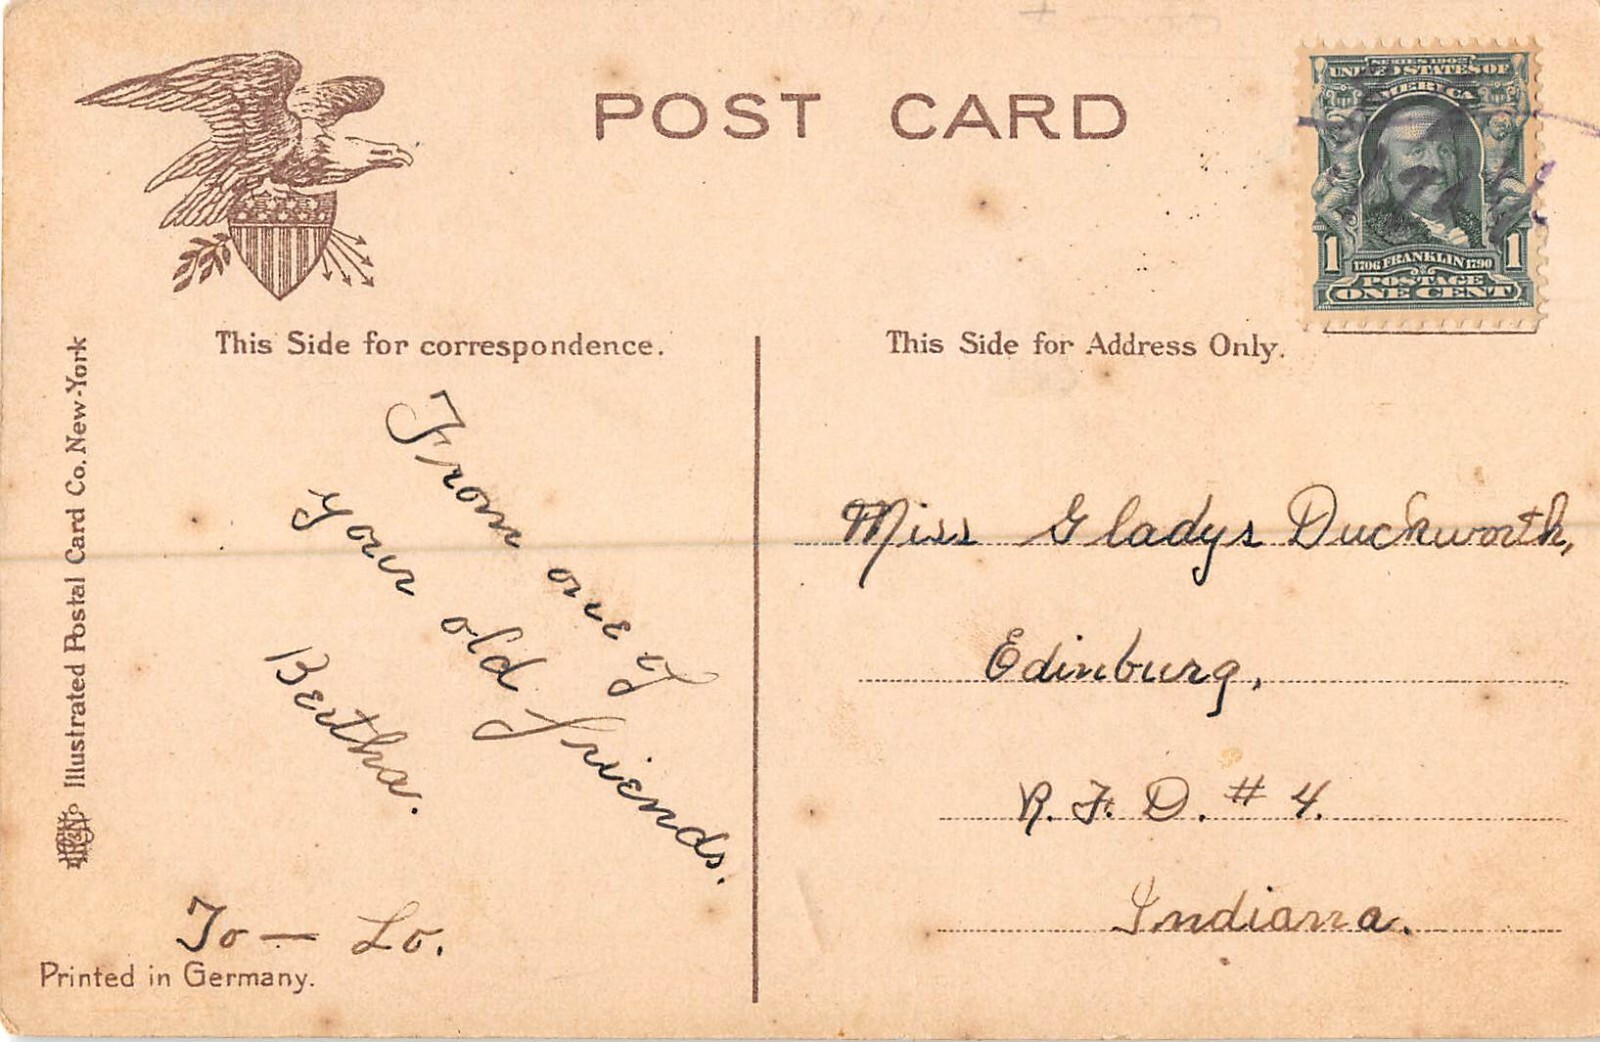 POST CARD
SERIES 1902
UNITED STATES OF
AMERICA
1 1
1706 FRANKLIN 1790
POSTAGE
ONE CENT
This Side for correspondence.
This Side for Address Only.
Illustrated Postal Card Co. New-York
From one of
your old friends.
Bertha.
To — Lo.
Printed in Germany.
Miss Gladys Duckworth,
Edinburg,
R. F. D. # 4.
Indiana.